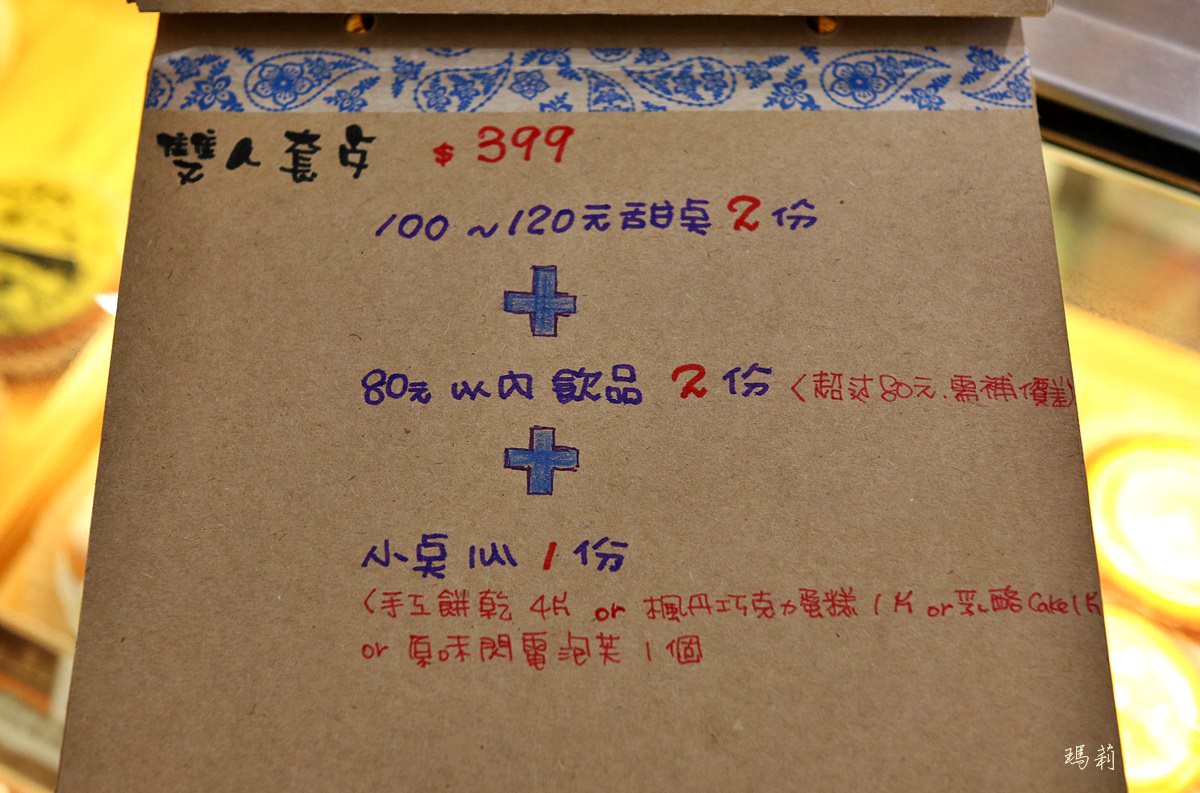 雙人套点 $399
100~120元甜桌2份
80元以內飲品2份(超过80元.需補價差)
小桌心1份
(手工餅乾4片 or 楓丹巧克力蛋糕1片 or 乳酪Cake1片
or 原味閃電泡芙1個
瑪莉